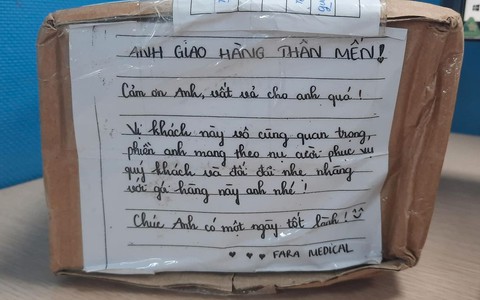 ANH GIAO HÀNG THÂN MẾN!
Cảm ơn Anh, vất vả cho anh quá!
Vị khách này vô cùng quan trọng,
phiền anh mang theo nụ cười phục vụ
quý khách và đối đãi nhẹ nhàng
với gói hàng này anh nhé!
Chúc Anh có một ngày tốt lành!
FARA MEDICAL